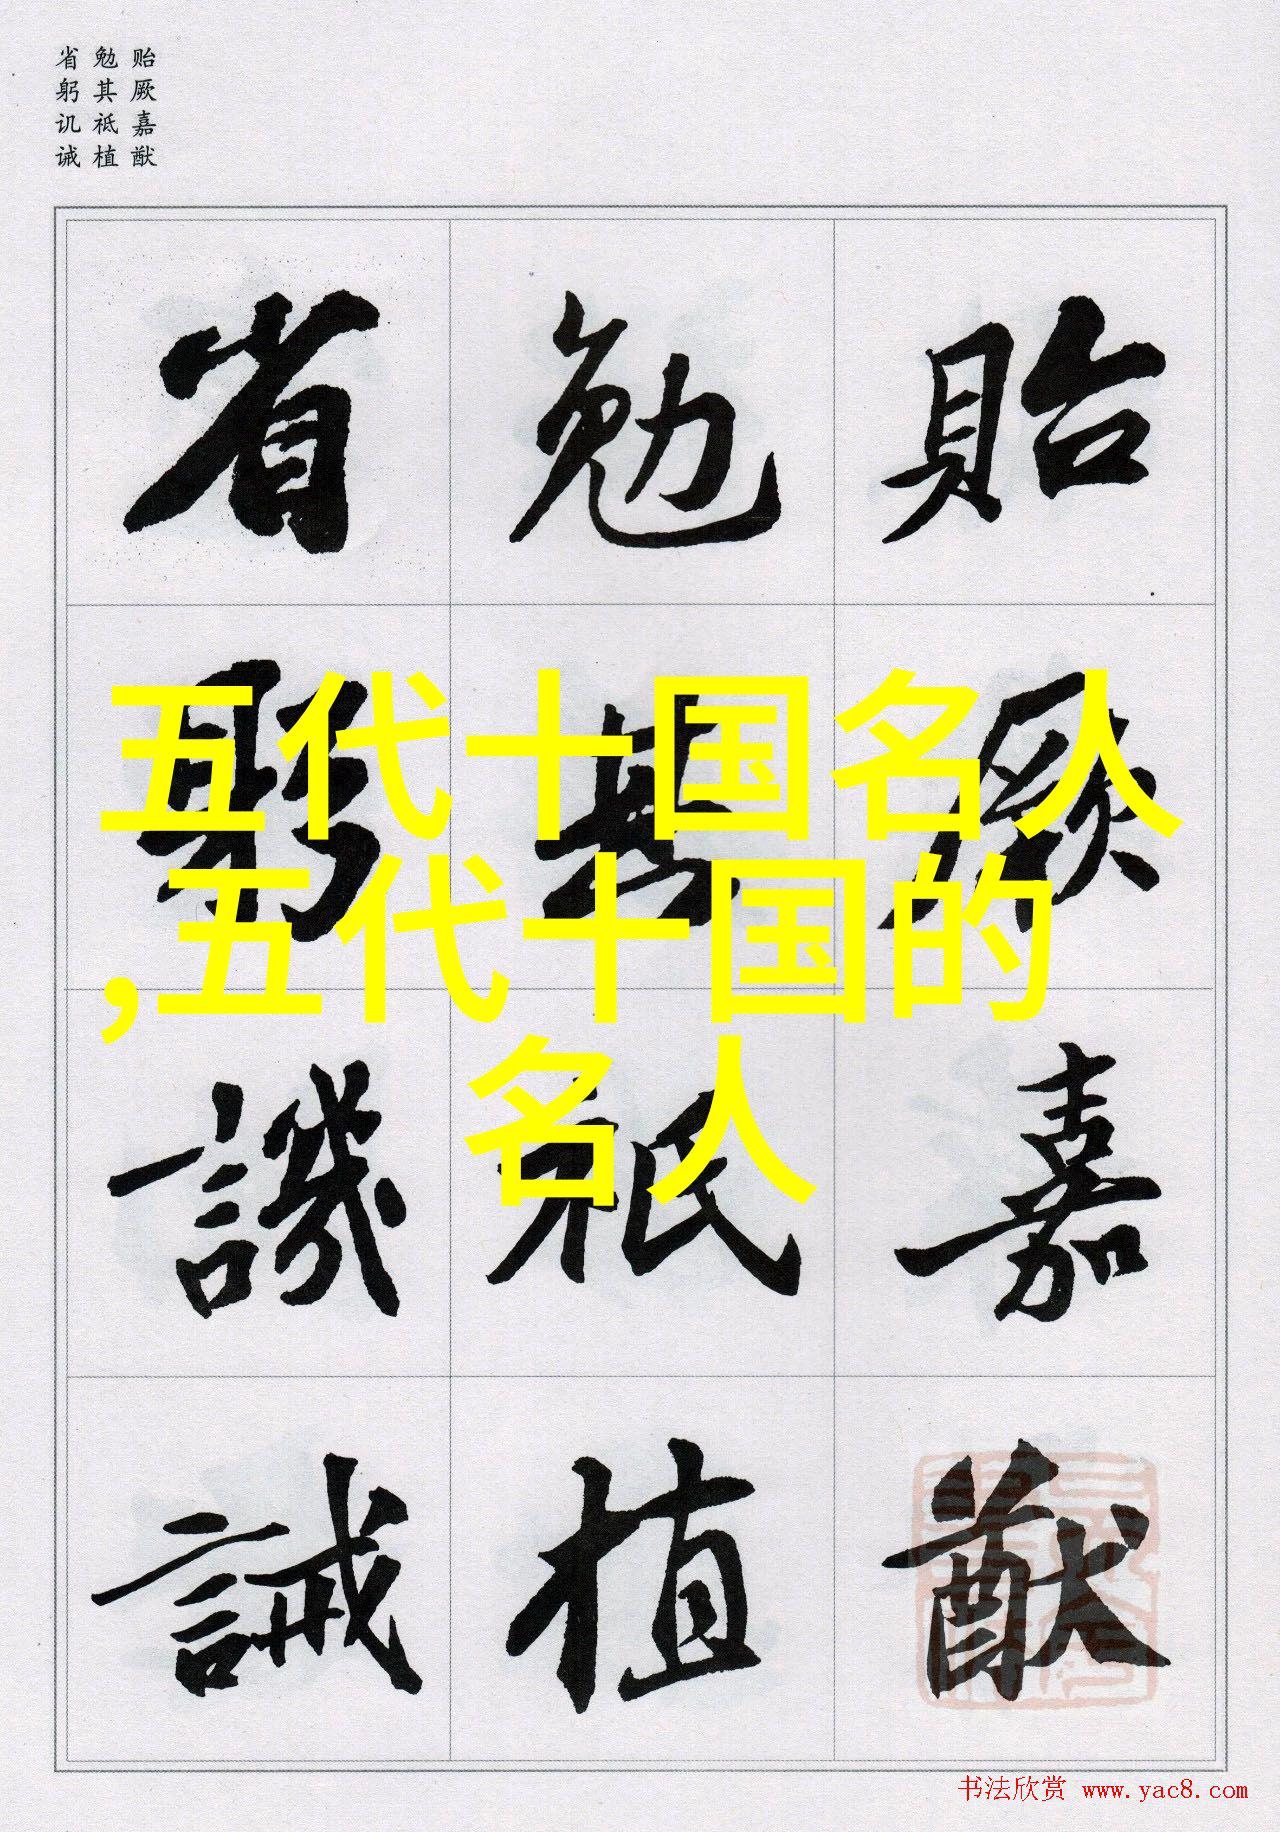 贻厥嘉猷
勉其祗植
省躬讥诫
貽厥嘉猷
勉其祗植
省躬譏誡
五代十国名人
,五代十国的
名人
书法欣赏 www.yac8.com